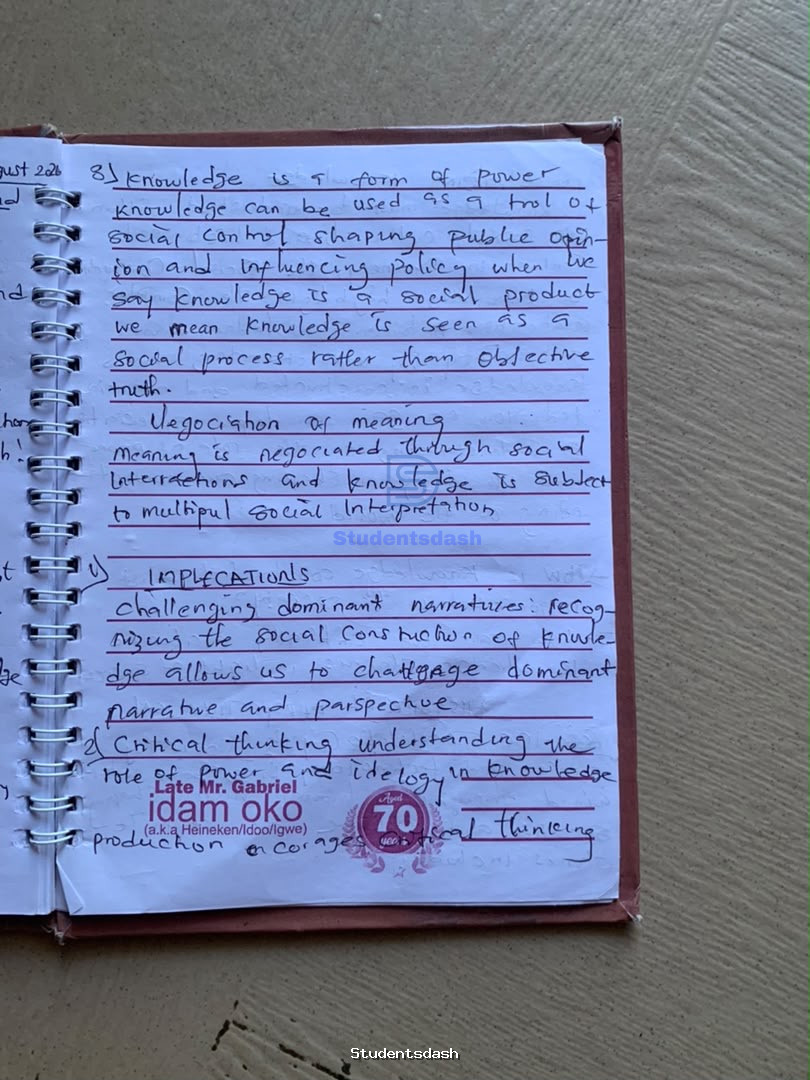 gust 2026
8) Knowledge is a form of power
knowledge can be used as a trol of
social control shaping public opin-
ion and influencing policy when we
say knowledge is a social product
we mean knowledge is seen as a
social process rather than objective
truth.
Negociation of meaning
meaning is negociated through social
interractions and knowledge is subject
to multipul social Interpretation
Studentsdash
1) IMPLECATIONS
challenging dominant narratives: recog-
nizing the social construction of knowle-
dge allows us to challgage dominant
narrative and parspective
2) Critical thinking understanding the
role of power and idelogy in knowledge
Late Mr. Gabriel
idam oko
(a.k.a Heineken/Idoo/Igwe)
Aged
70
years
production encorages critical thinking
Studentsdash